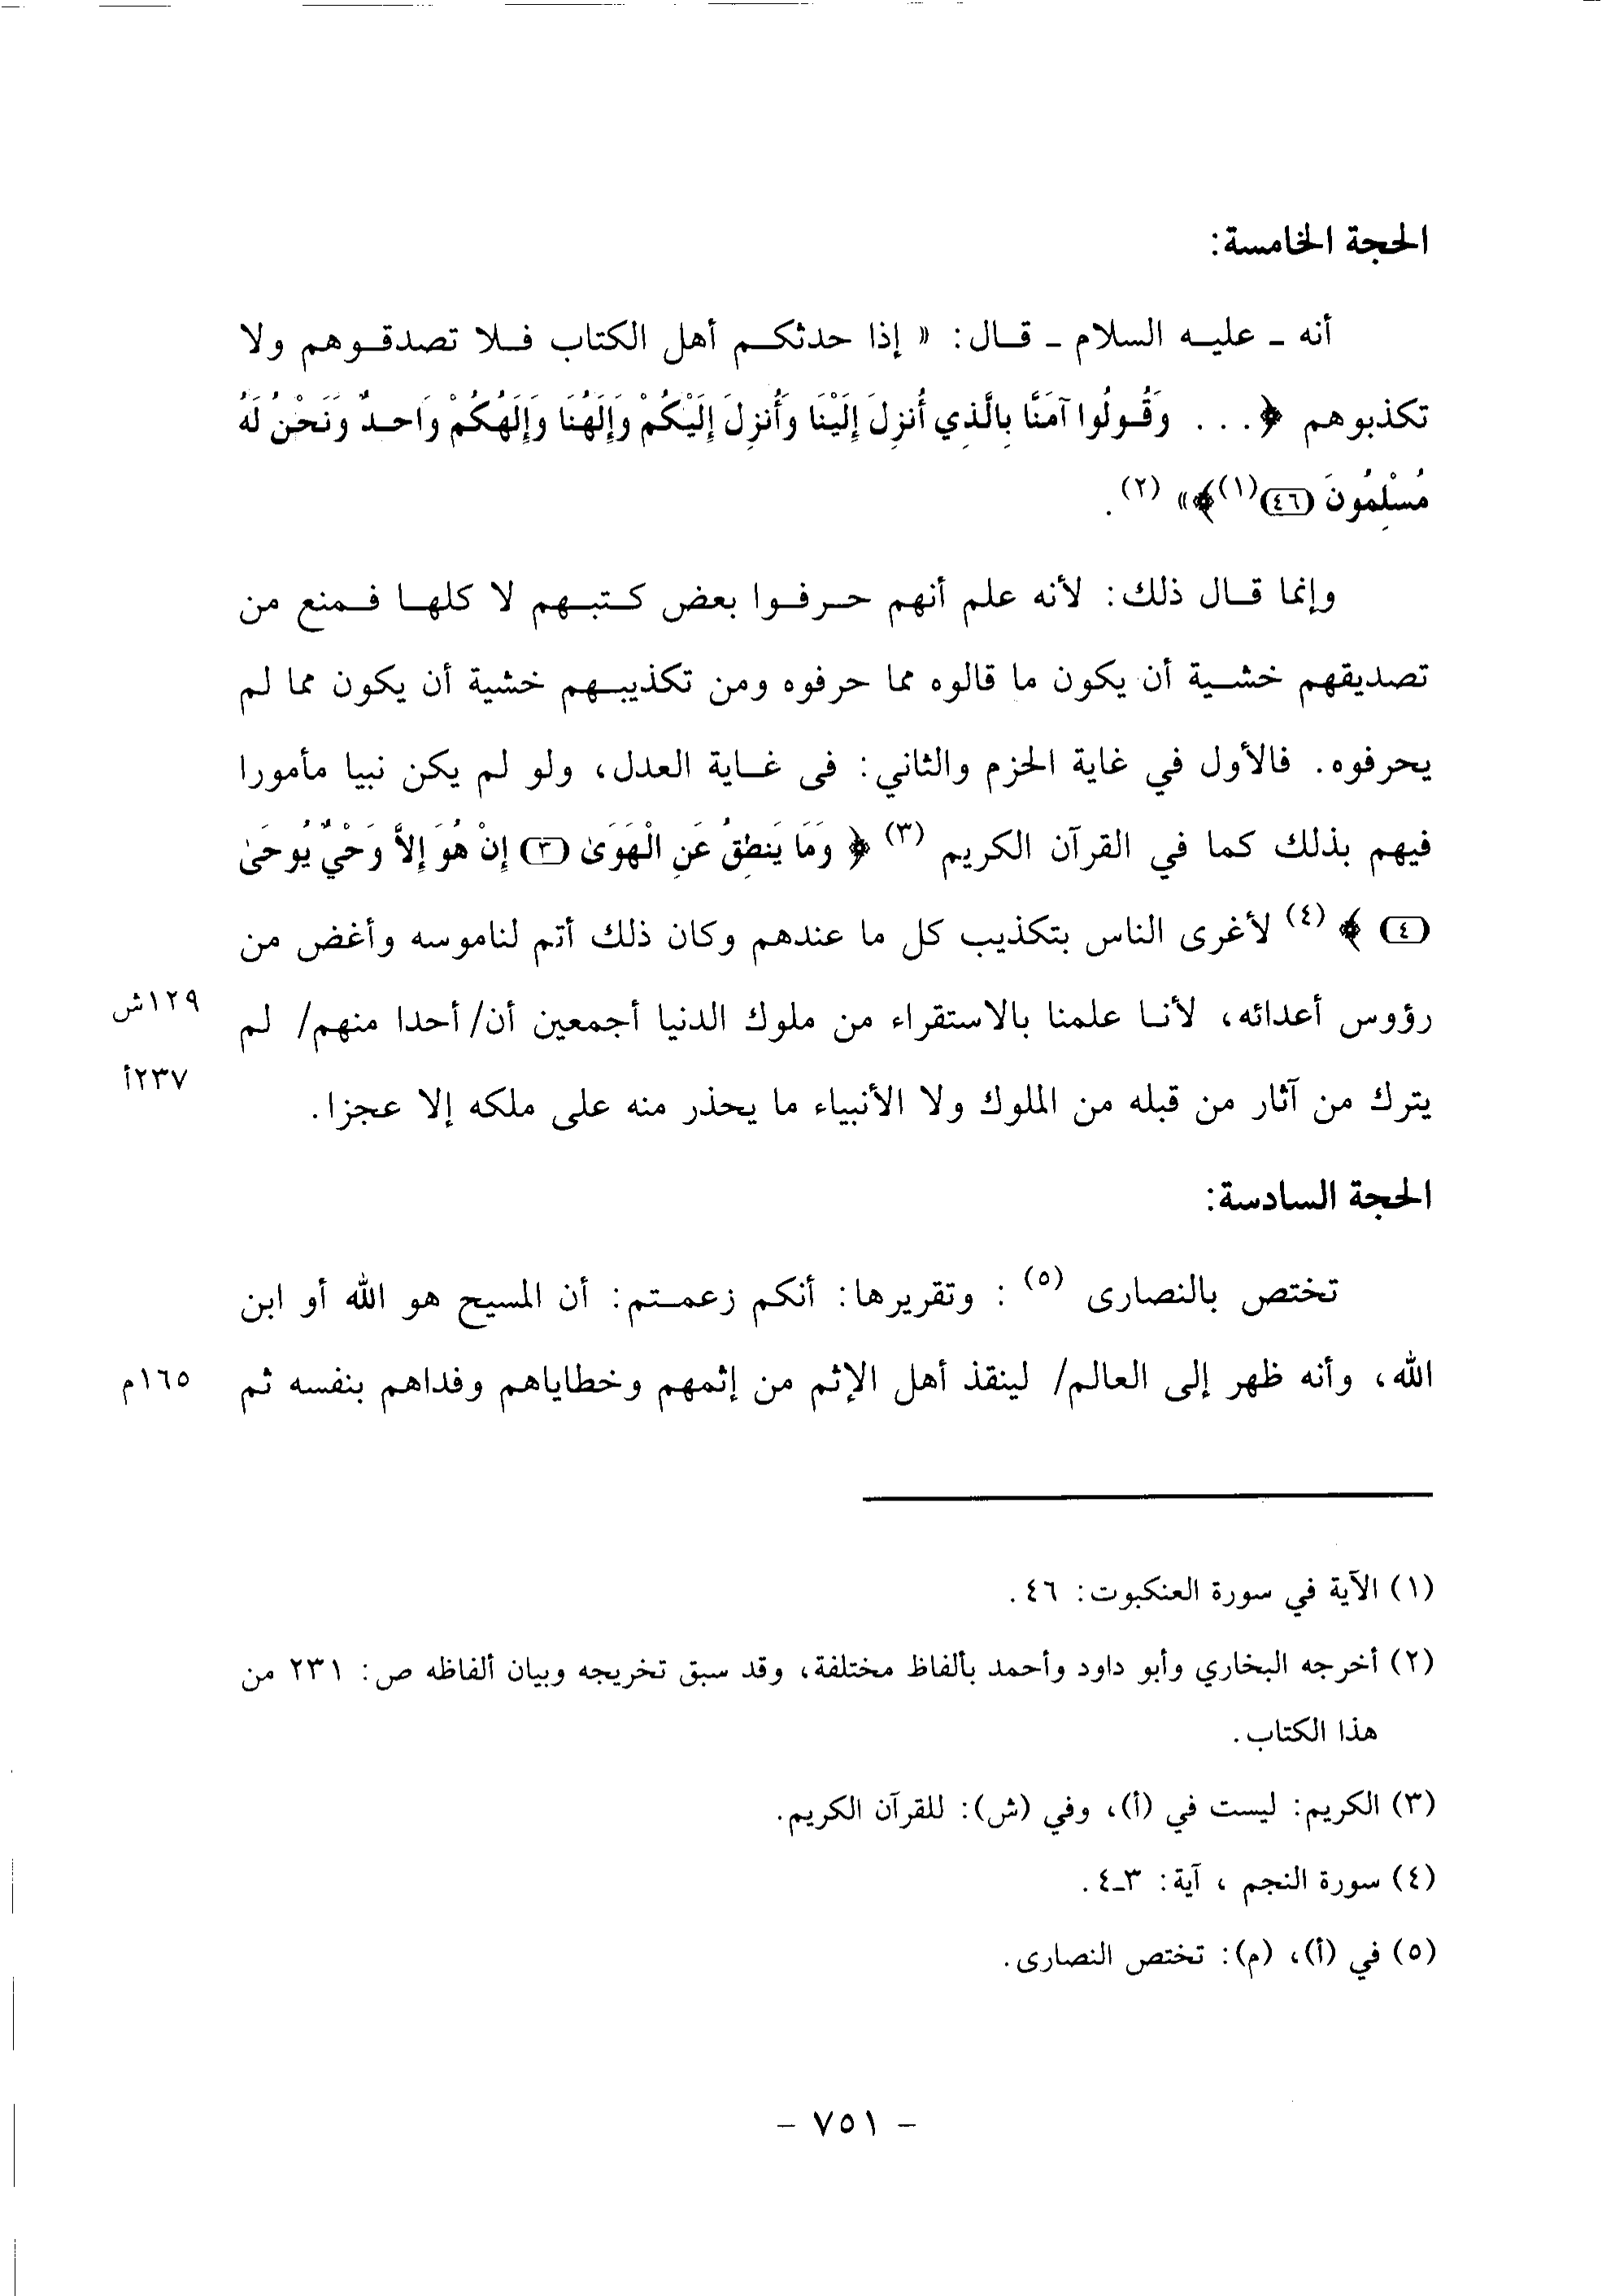 الحجة الخامسة:
أنه ـ عليه السلام ـ قال: « إذا حدثكم أهل الكتاب فلا تصدقوهم ولا
تكذبوهم ﴿ . . . وَقُولُوا آمَنَّا بِالَّذِي أُنزِلَ إِلَيْنَا وَأُنزِلَ إِلَيْكُمْ وَإِلَهُنَا وَإِلَهُكُمْ وَاحِدٌ وَنَحْنُ لَهُ
مُسْلِمُونَ (٤٦)(١)﴾» (٢) .
وإنما قال ذلك: لأنه علم أنهم حرفوا بعض كتبهم لا كلها فمنع من
تصديقهم خشية أن يكون ما قالوه مما حرفوه ومن تكذيبهم خشية أن يكون مما لم
يحرفوه. فالأول في غاية الحزم والثاني: فى غاية العدل، ولو لم يكن نبيا مأمورا
فيهم بذلك كما في القرآن الكريم (٣) ﴿ وَمَا يَنطِقُ عَنِ الْهَوَىٰ (٣) إِنْ هُوَ إِلاَّ وَحْيٌ يُوحَىٰ
(٤) ﴾ (٤) لأغرى الناس بتكذيب كل ما عندهم وكان ذلك أتم لناموسه وأغض من
رؤوس أعدائه، لأنا علمنا بالاستقراء من ملوك الدنيا أجمعين أن/ أحدا منهم/ لم
١٢٩ش
يترك من آثار من قبله من الملوك ولا الأنبياء ما يحذر منه على ملكه إلا عجزا.
٢٣٧أ
الحجة السادسة:
تختص بالنصارى (٥) : وتقريرها: أنكم زعمتم: أن المسيح هو الله أو ابن
الله، وأنه ظهر إلى العالم/ لينقذ أهل الإثم من إثمهم وخطاياهم وفداهم بنفسه ثم
١٦٥م
(١) الآية في سورة العنكبوت: ٤٦.
(٢) أخرجه البخاري وأبو داود وأحمد بألفاظ مختلفة، وقد سبق تخريجه وبيان ألفاظه ص: ٢٣١ من
هذا الكتاب.
(٣) الكريم: ليست في (أ)، وفي (ش): للقرآن الكريم.
(٤) سورة النجم ، آية: ٣ـ٤.
(٥) في (أ)، (م): تختص النصارى.
- ٧٥١ -